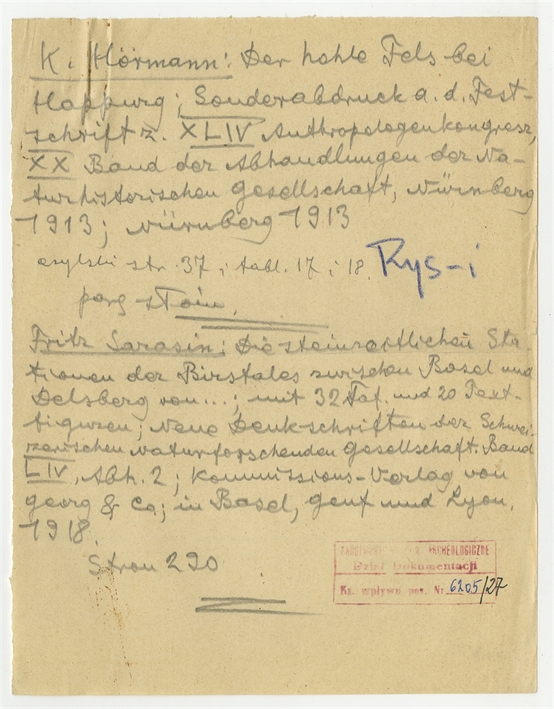 K. Hörmann: Der hohle Fels bei
Happurg; Sonderabdruck a. d. Fest-
schrift z. XLIV Anthropologenkongresz,
XX Band der Abhandlungen der Na-
turhistorischen Gesellschaft, Nürnberg
1913; Nürnberg 1913
azylski str. 37; tabl. 17 i 18. Rys-i
Fritz Sarasin: Die steinzeitlichen Sta
tionen der Birstales zwischen Basel und
Delsberg von...; mit 32 Taf. und 20 Text-
figuren; Neue Denkschriften der Schwei-
zerischen Naturforschenden Gesellschaft. Band
LIV, Abh. 2; Kommissions-Verlag von
Georg & Co; in Basel, Genf und Lyon.
1918.
Stron 290
ARCHEOLOGICZNE
Dział Dokumentacji
Ks. wpływu poz. Nr 6205/27